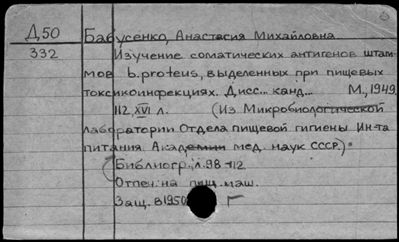 Д,50 Бабусенко, Анастасия Михайловна
332 Изучение соматических антигенов штам-
мов b.proteus, выделенных при пищевых
токсикоинфекциях. Дисс... канд... М., 1949
112, XVI л. (Из Микробиологической
лаборатории Отдела пищевой гигиены Ин-та
питания Академии мед. наук СССР.)
Библиогр.: л. 98-112
Отпеч. на пиш. маш.
Защ. в 1950 г